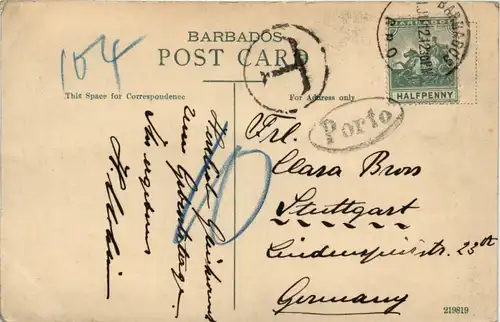 104
BARBADOS
POST CARD
This Space for Correspondence
For Address only
T
BARBADOS
HALFPENNY
Porto
Herzlichen Glückwunsch
zum Geburtstage.
Ihr ergebener
10
Frl.
Clara Bros
Stuttgart
Lindenspürstr. 23 III
Germany
219819